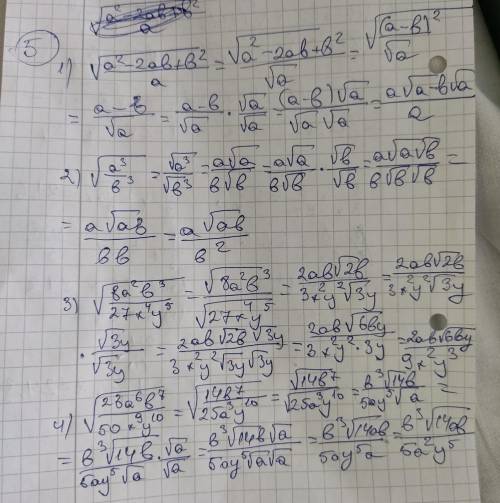 √((a² - 2ab + b²)/a)
5
1) √((a² - 2ab + b²)/a) = √(a² - 2ab + b²)/√a = √((a-b)²)/√a
= (a-b)/√a = (a-b)/√a · √a/√a = ((a-b)√a)/(√a √a) = (a√a - b√a)/a
2) √(a³/b³) = √a³/√b³ = a√a/b√b = a√a/b√b · √b/√b = a√a√b/b√b√b =
= a√ab/bb = a√ab/b²
3) √(8a²b³/27x⁴y⁵) = √(8a²b³)/√(27x⁴y⁵) = 2ab√2b/3x²y²√3y = 2ab√2b/3x²y²√3y
· √3y/√3y = 2ab√2b √3y/3x²y²√3y√3y = 2ab√6by/3x²y²·3y = 2ab√6by/9x²y³
4) = √(14b⁷/25a³y¹⁰) = √(14b⁷)/√(25a³y¹⁰) = b³√14b/5ay⁵√a =
= b³√14b/5ay⁵√a · √a/√a = b³√14b√a/5ay⁵√a√a = b³√14ab/5ay⁵a = b³√14ab/5a²y⁵